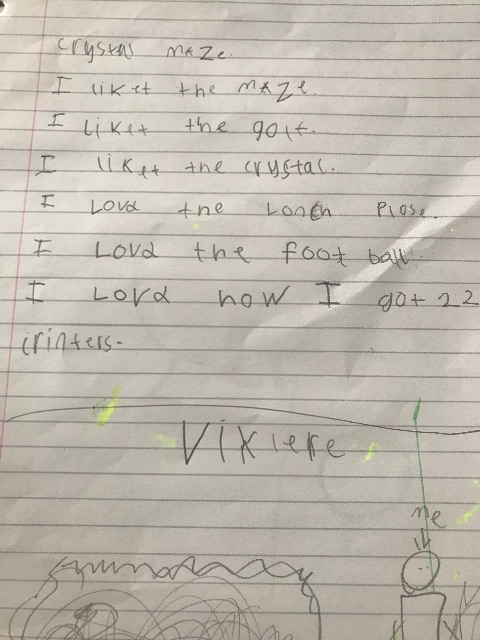 crystal maze.
I liket the maze.
I liket the golf.
I liket the crystal.
I Lovd the Lonch Plose.
I Lovd the foot ball.
I Lovd how I got 22
crinters.
Vikiere
me